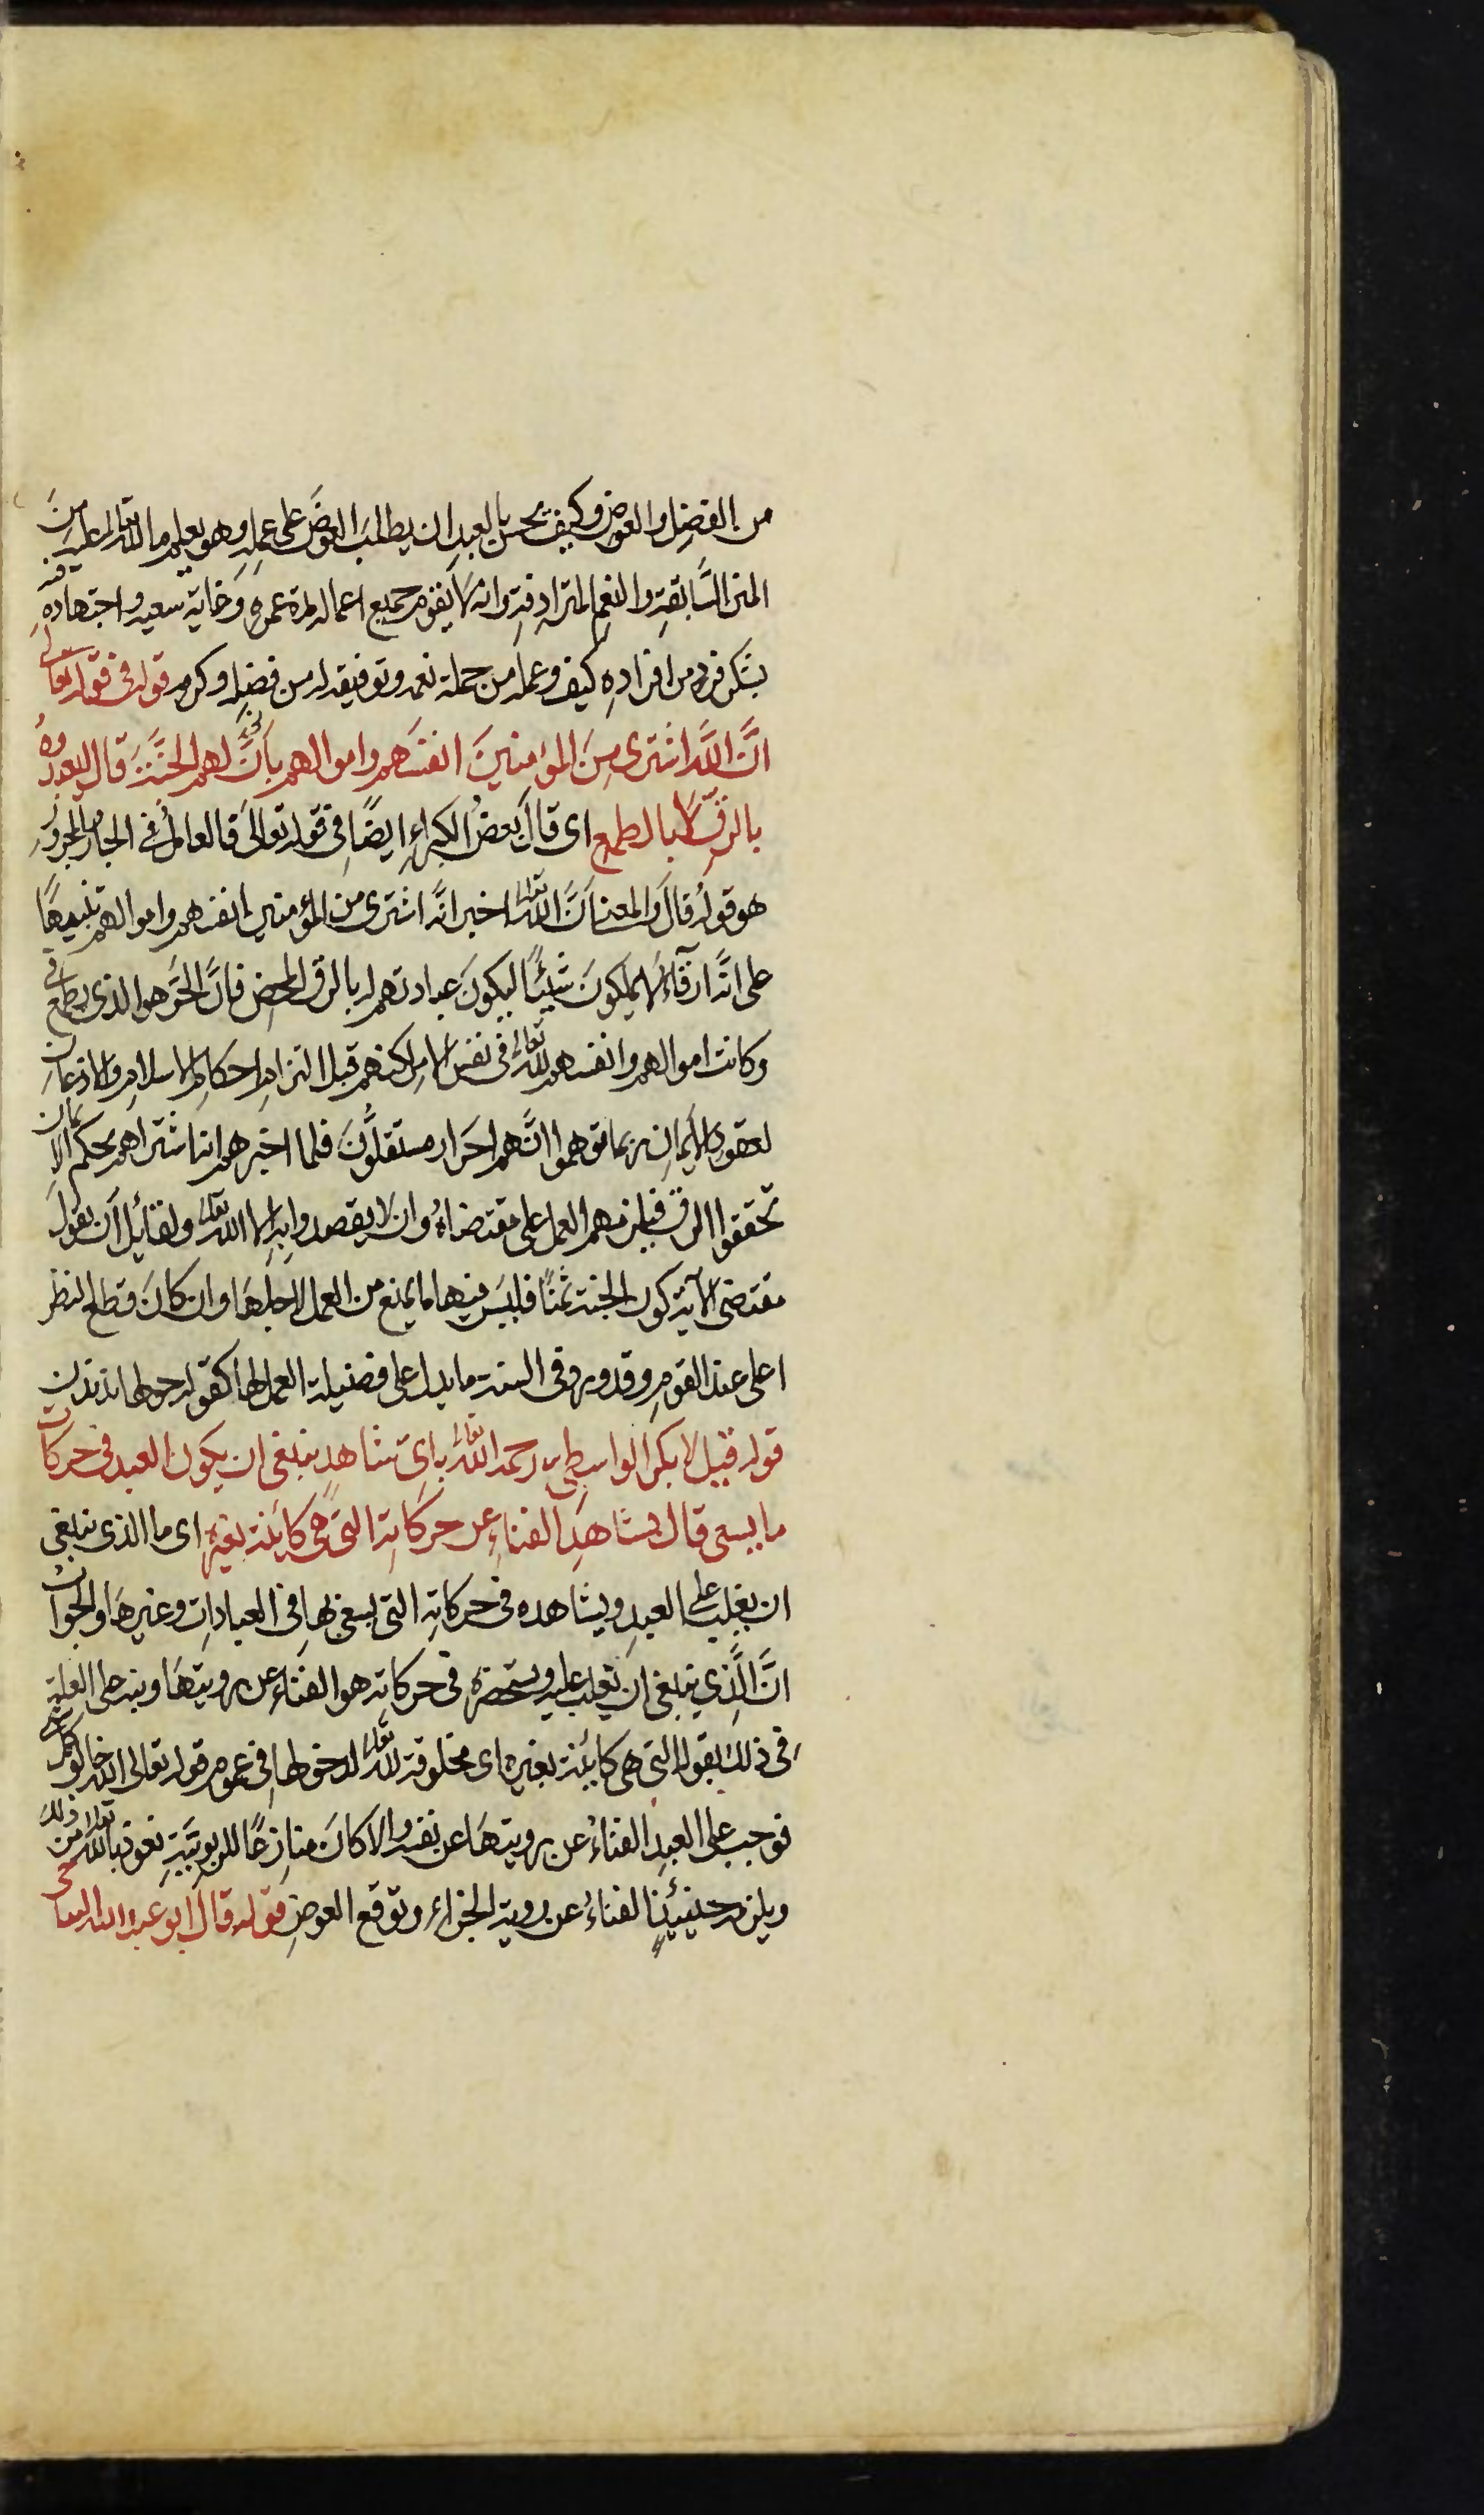 من الفضل والعوض وكيف يحسن بالعبد ان يطلب العوض على عمله وهو يعلم ما لله تعالى عليه من
المنن السَّابقةِ والنعم المترادفة وانه لا يقوم جميع اعماله مدة عمره وغاية سعيه واجتهاده فيه
بشكر فرد من افراده كيف وعمله من جملة نعمه وتوفيقه له من فضله وكرمه قوله فى قوله تعالى
انَّ اللَّه اشترى مِنَ المؤمنينَ انفسَهم واموالهم بأنَّ لهم الجنَّةَ قال ليعبدوهُ
بالرقِّ لا بالطمعِ اى قالَ بعضُ الكبراءِ ايضًا فى قوله تعالىَ فالعاملُ فى الجار والمجرور
هو قولُه قالَ والمعنى انَّ اللّه تعالى اخبر انَّه اشترى من المؤمنين انفسهم واموالهم تنبيهًا
على انَّهم ارقآءُ لا يملكونَ شيئًا ليكونَ عبادتهم له بالرق المحضِ فانَّ الحَرَّ هو الذى يطمع فى
وكانت اموالهم وانفسهم للّه تعالى فى نفس الامر لكنهم قبل التزامِ احكام الاسلامِ والاذعان
لعقود الايمانِ ربما توهموا انَّهم احرار مستقلُّونَ فلما اخبرهم انه اشتراهم بحكم الايمان
تحققوا الرق فيلزمهم العمل على مقتضاهُ وان لا يقصدوا به الا اللّه تعالى ولقائل ان يقول
مقتضى الآية كون الجنة ثمنًا فليسَ فيها ما يمنع من العمل لاجلهَا وان كانَ قطع النظر
اعلى عند القوم وقد ورد فى السنة ما يدل على فضيلة العمل لها كقوله حولها ندندن
قوله قيل لابى بكر الواسطى رحمه اللّه تعالى باىِّ شاهدٍ ينبغى ان يكون العبد فى حركات
ما يسعى قال بشاهدِ الفناءِ عن حركاتِه التى هى كائنة بغيره اى ما الذى ينبغى
ان يغلب على العبدِ ويشاهده فى حركاتِه التى يسعى بها فى العباداتِ وغيرهَا والجواب
انَّ الَّذي ينبغى ان يغلب عليه ويستحضره فى حركاته هو الفناءُ عن رويتهَا ونبه على العلة
فى ذلك بقوله التى هى كائنة بغيره اى مخلوقة للّه تعالى لدخولها فى عموم قوله تعالى اللّه خالق كل شى
فوجب على العبدِ الفناءُ عن رويتهَا عن نفسه والا كانَ منازِعًا للربوبيَّةِ نعوذ باللّه تعالى من ذلك
ويلزمه حينئذٍ الفناءُ عن روية الجزاء وتوقع العوضِ قوله قال ابو عبد الله النباجى